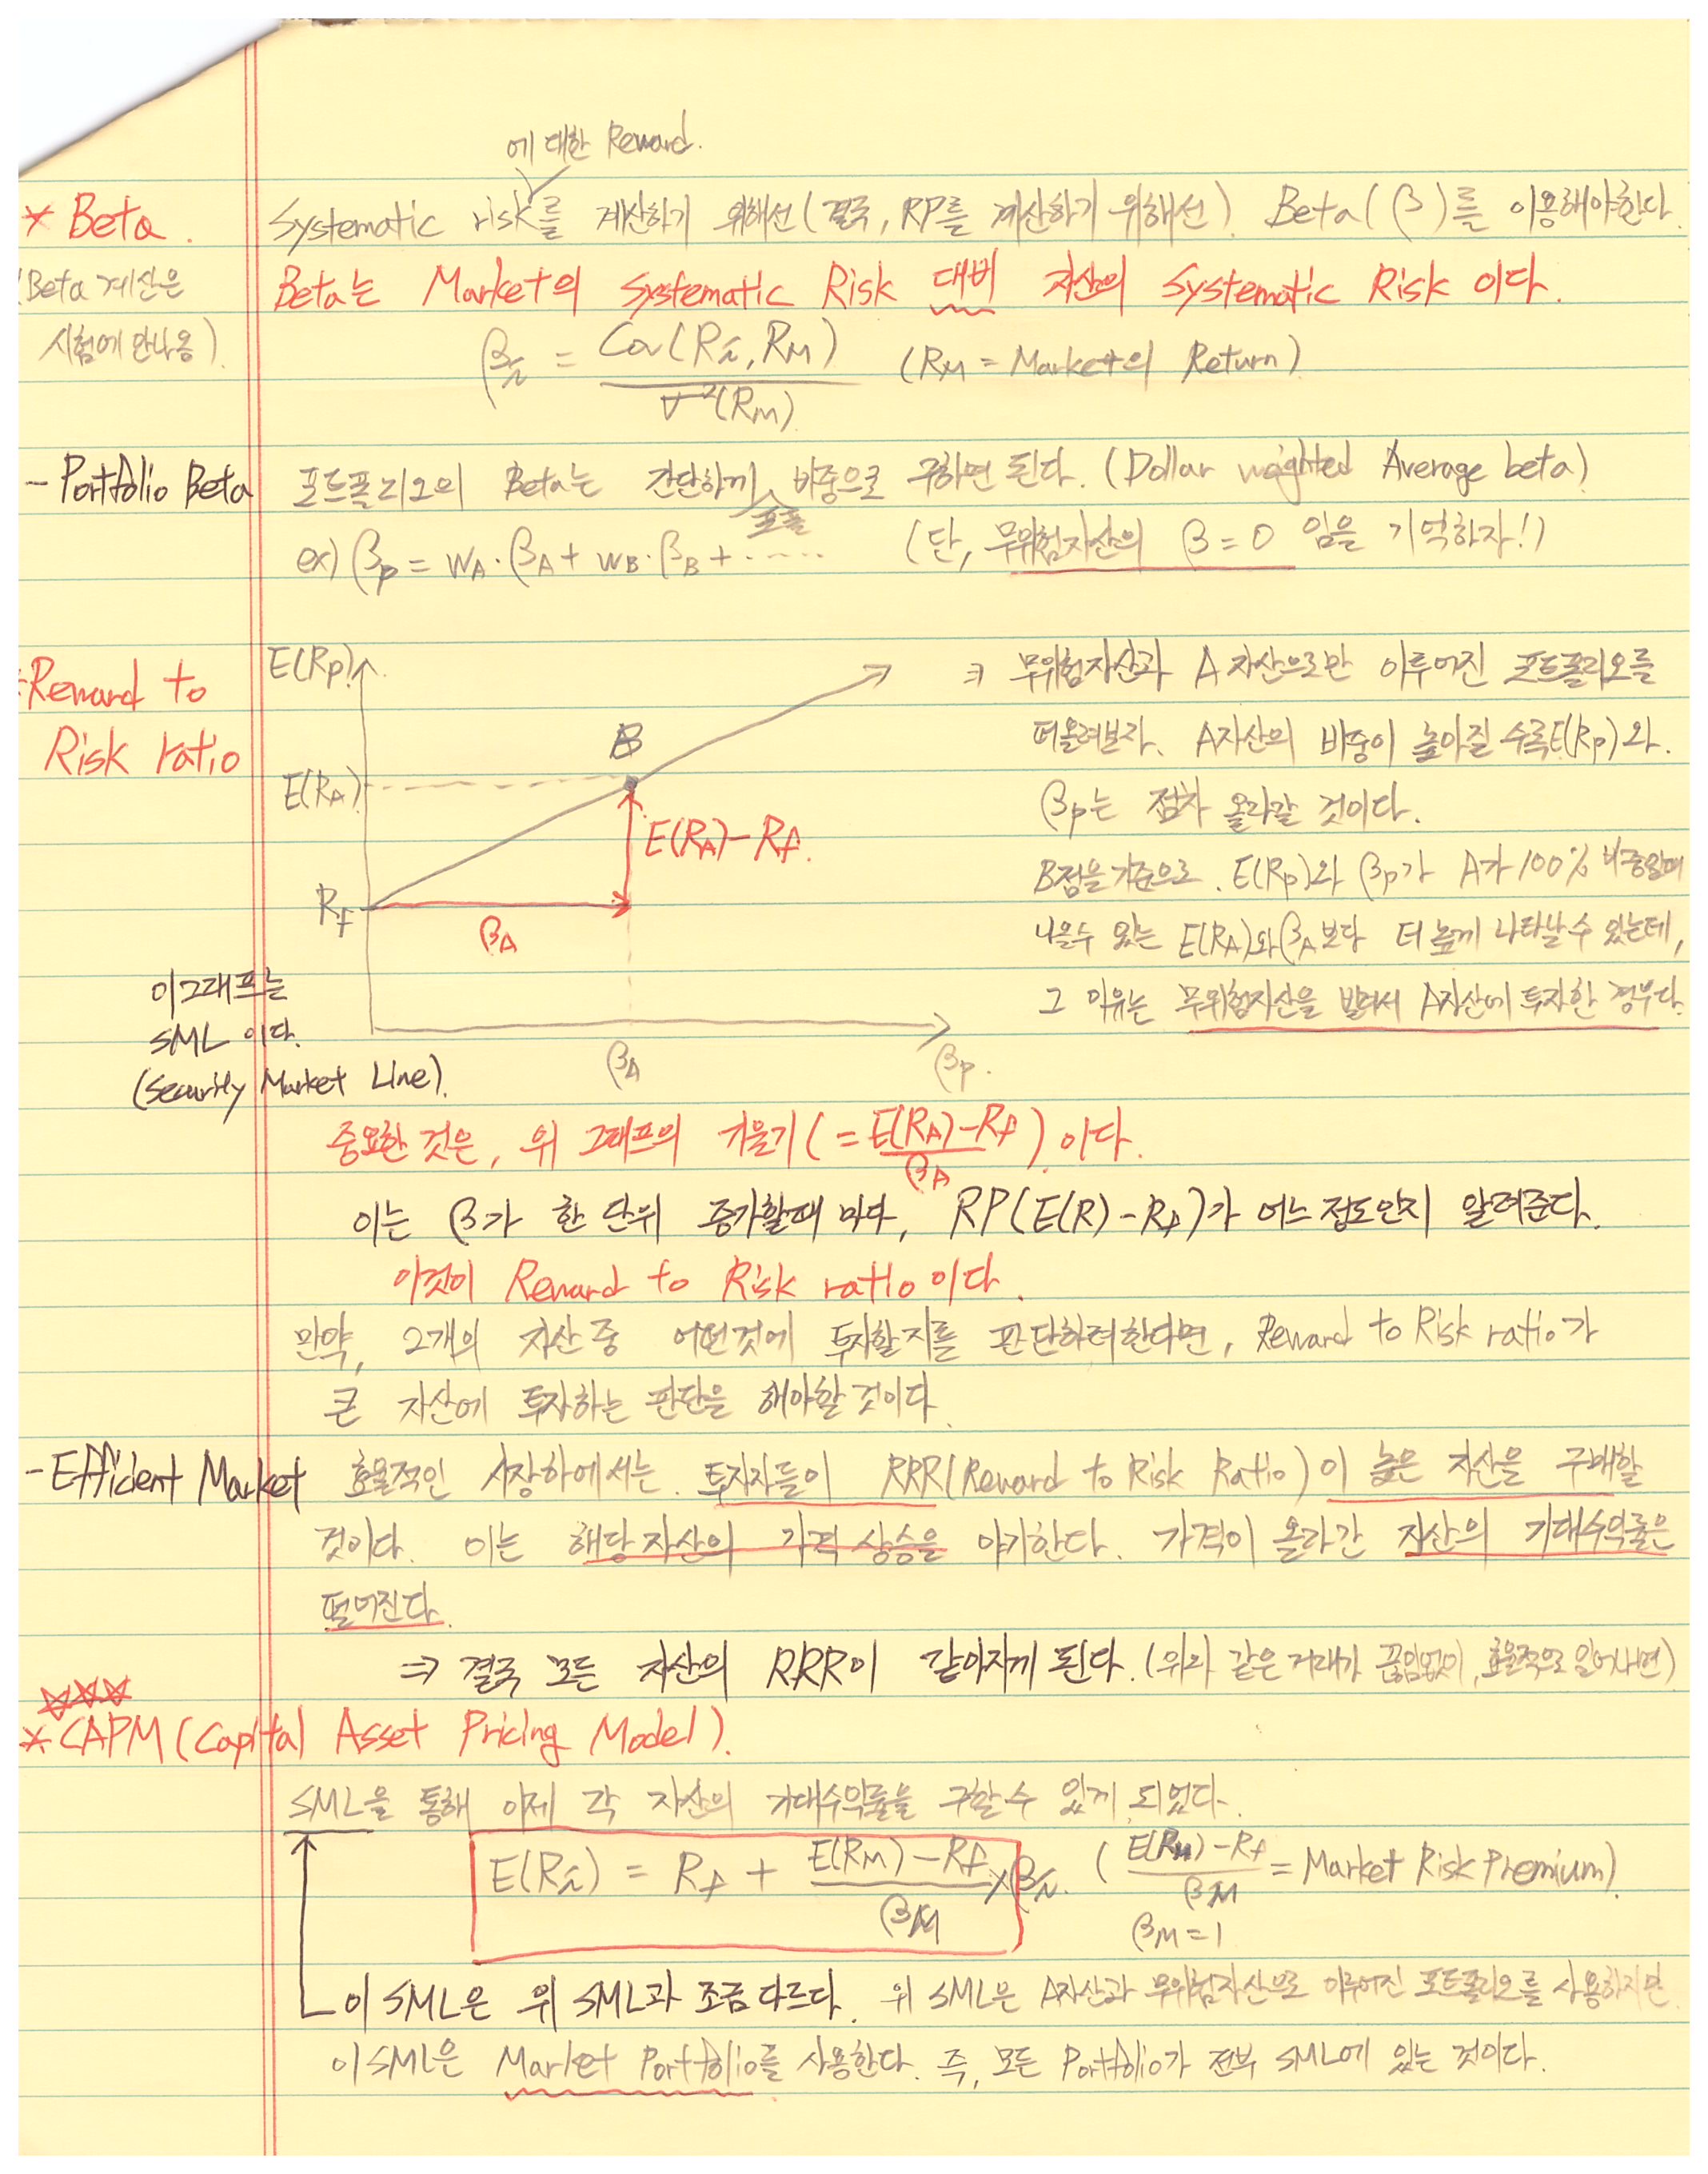 에 대한 Reward.
* Beta. Systematic risk를 계산하기 위해선 (결국, RP를 계산하기 위해선) Beta(β)를 이용해야한다.
(Beta 계산은 시험에 안나옴)
Beta는 Market의 Systematic Risk 대비 자산의 Systematic Risk 이다.
βi = Cov(Ri, RM) / σ²(RM) (RM = Market의 Return)
- Portfolio Beta 포트폴리오의 Beta는 간단하게 포폴 비중으로 구하면 된다. (Dollar weighted Average beta)
ex) βp = WA·βA + WB·βB + ····· (단, 무위험자산의 β = 0 임을 기억하자!)
Reward to
Risk ratio
E(Rp)
B
E(RA)
E(RA)-Rf.
Rf
βA
βA
βp.
이 그래프는
SML 이다.
(Security Market Line).
⇒ 무위험자산과 A자산으로만 이루어진 포트폴리오를
떠올려보자. A자산의 비중이 높아질 수록 E(Rp)와.
βp는 점차 올라갈 것이다.
B점을 기준으로. E(Rp)와 βp가 A가 100% 비중일때
나올수 있는 E(RA)와 βA 보다 더 높게 나타날 수 있는데,
그 이유는 무위험자산을 빌려서 A자산에 투자한 경우다.
중요한 것은, 위 그래프의 기울기 (= E(RA)-Rf / βA) 이다.
이는 β가 한 단위 증가할때 마다, RP(E(R)-Rf)가 어느 정도인지 알려준다.
이것이 Reward to Risk ratio 이다.
만약, 2개의 자산 중 어떤것에 투자할지를 판단하려한다면, Reward to Risk ratio가
큰 자산에 투자하는 판단을 해야할 것이다.
- Efficient Market 효율적인 시장하에서는. 투자자들이 RRR(Reward to Risk Ratio)이 높은 자산을 구매할
것이다. 이는 해당 자산의 가격 상승을 야기한다. 가격이 올라간 자산의 기대수익률은
떨어진다.
⇒ 결국 모든 자산의 RRR이 같아지게 된다. (위와 같은 거래가 끊임없이, 효율적으로 일어나면)
☆☆☆
* CAPM (Capital Asset Pricing Model).
SML을 통해 이제 각 자산의 기대수익률을 구할 수 있게 되었다.
E(Ri) = Rf + E(RM)-Rf / βM × βi. (E(RM)-Rf / βM = Market Risk Premium)
βM = 1
이 SML은 위 SML과 조금 다르다. 위 SML은 A자산과 무위험자산으로 이루어진 포트폴리오를 사용하지만
이 SML은 Market Portfolio를 사용한다. 즉, 모든 Portfolio가 전부 SML에 있는 것이다.